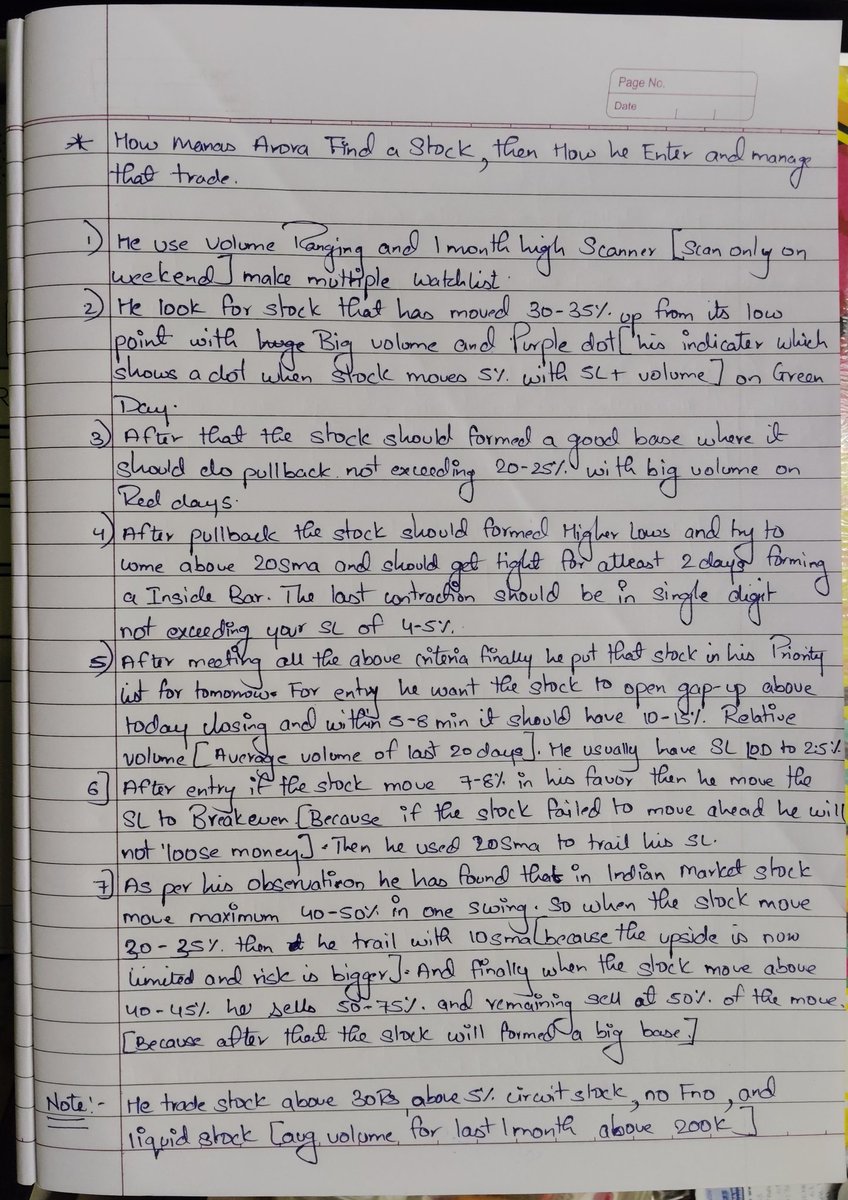 Page No.
Date
* How Manas Arora Find a Stock, then How he Enter and manage
that trade.
1) He use Volume Ranging and 1 month high Scanner [Scan only on
weekend] make multiple watchlist.
2) He look for stock that has moved 30-35% up from its low
point with Big volume and Purple dot [his indicater which
shows a dot when stock moves 5% with 5L+ volume] on Green
Day.
3) After that the stock should formed a good base where it
should do pullback not exceeding 20-25% with big volume on
Red days.
4) After pullback the stock should formed Higher Lows and try to
come above 20sma and should get tight for atleast 2 days forming
a Inside Bar. The last contraction should be in single digit
not exceeding your SL of 4-5%.
5) After meeting all the above criteria finally he put that stock in his Priority
list for tomorrow. For entry he want the stock to open gap-up above
today closing and within 5-8 min it should have 10-15% Relative
volume [Average volume of last 20 days]. He usually have SL LOD to 2.5%
6] After entry if the stock move 7-8% in his favor then he move the
SL to Breakeven [Because if the stock failed to move ahead he will
not 'loose money]. Then he used 20Sma to trail his SL.
7] As per his observation he has found that in Indian Market stock
move maximum 40-50% in one swing. So when the stock move
30-35% then he trail with 10sma [because the upside is now
limited and risk is bigger]. And finally when the stock move above
40-45% he sells 50-75% and remaining sell at 50% of the move.
[Because after that the stock will formed a big base.]
Note:- He trade stock above 30Rs, above 5% circuit stock, no Fno, and
liquid stock [avg volume for last 1 month above 200k]